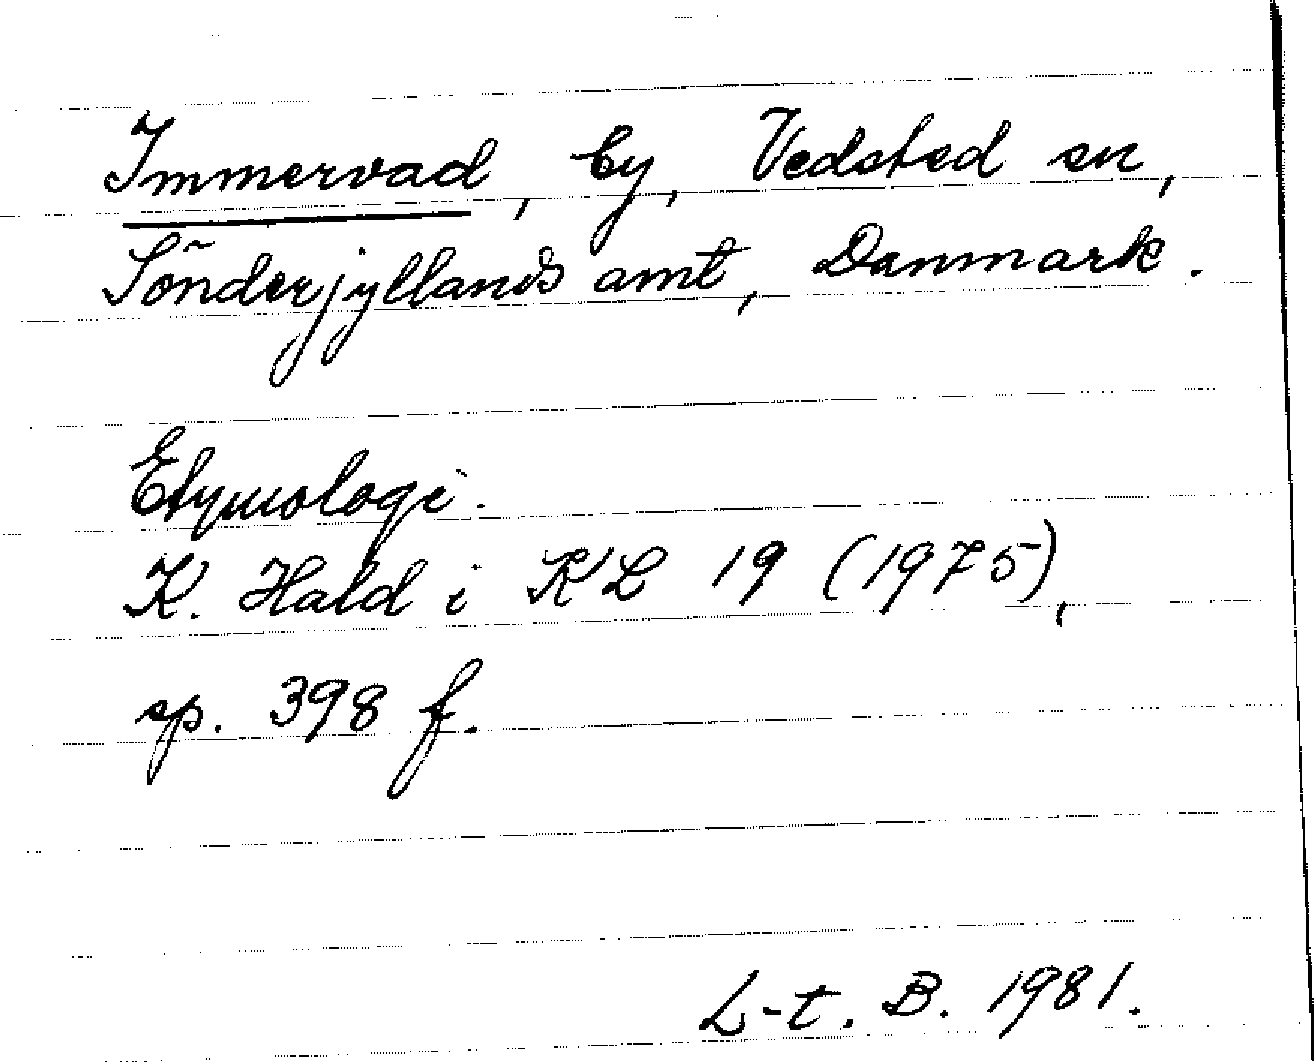 Immervad, by, Vedsted sn,
Sönderjyllands amt, Danmark.
Etymologi.
K. Hald i KL 19 (1975),
sp. 398 f.
L-t. B. 1981.